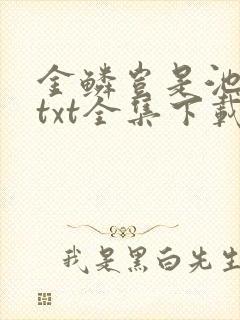 金鳞岂是池
txt全集下载
我是黑白先生